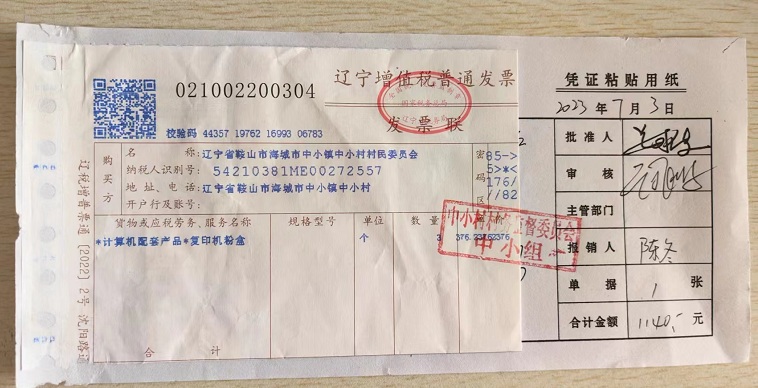 021002200304
辽宁增值税普通发票
国家税务总局
发票联
校验码 44357 19762 16993 06783
购买方
名称:辽宁省鞍山市海城市中小镇中小村村民委员会
纳税人识别号:54210381ME00272557
地址、电话:辽宁省鞍山市海城市中小镇中小村
开户行及账号:
密码区
85->
5>*<
176/
/82
货物或应税劳务、服务名称 规格型号 单位 数量
*计算机配套产品*复印机粉盒 个 3 376.23762376
合计
辽税增普票通〔2022〕2号
凭证粘贴用纸
2023年7月3日
批准人
审核
主管部门
报销人 陈冬
单据 1 张
合计金额 1140.- 元